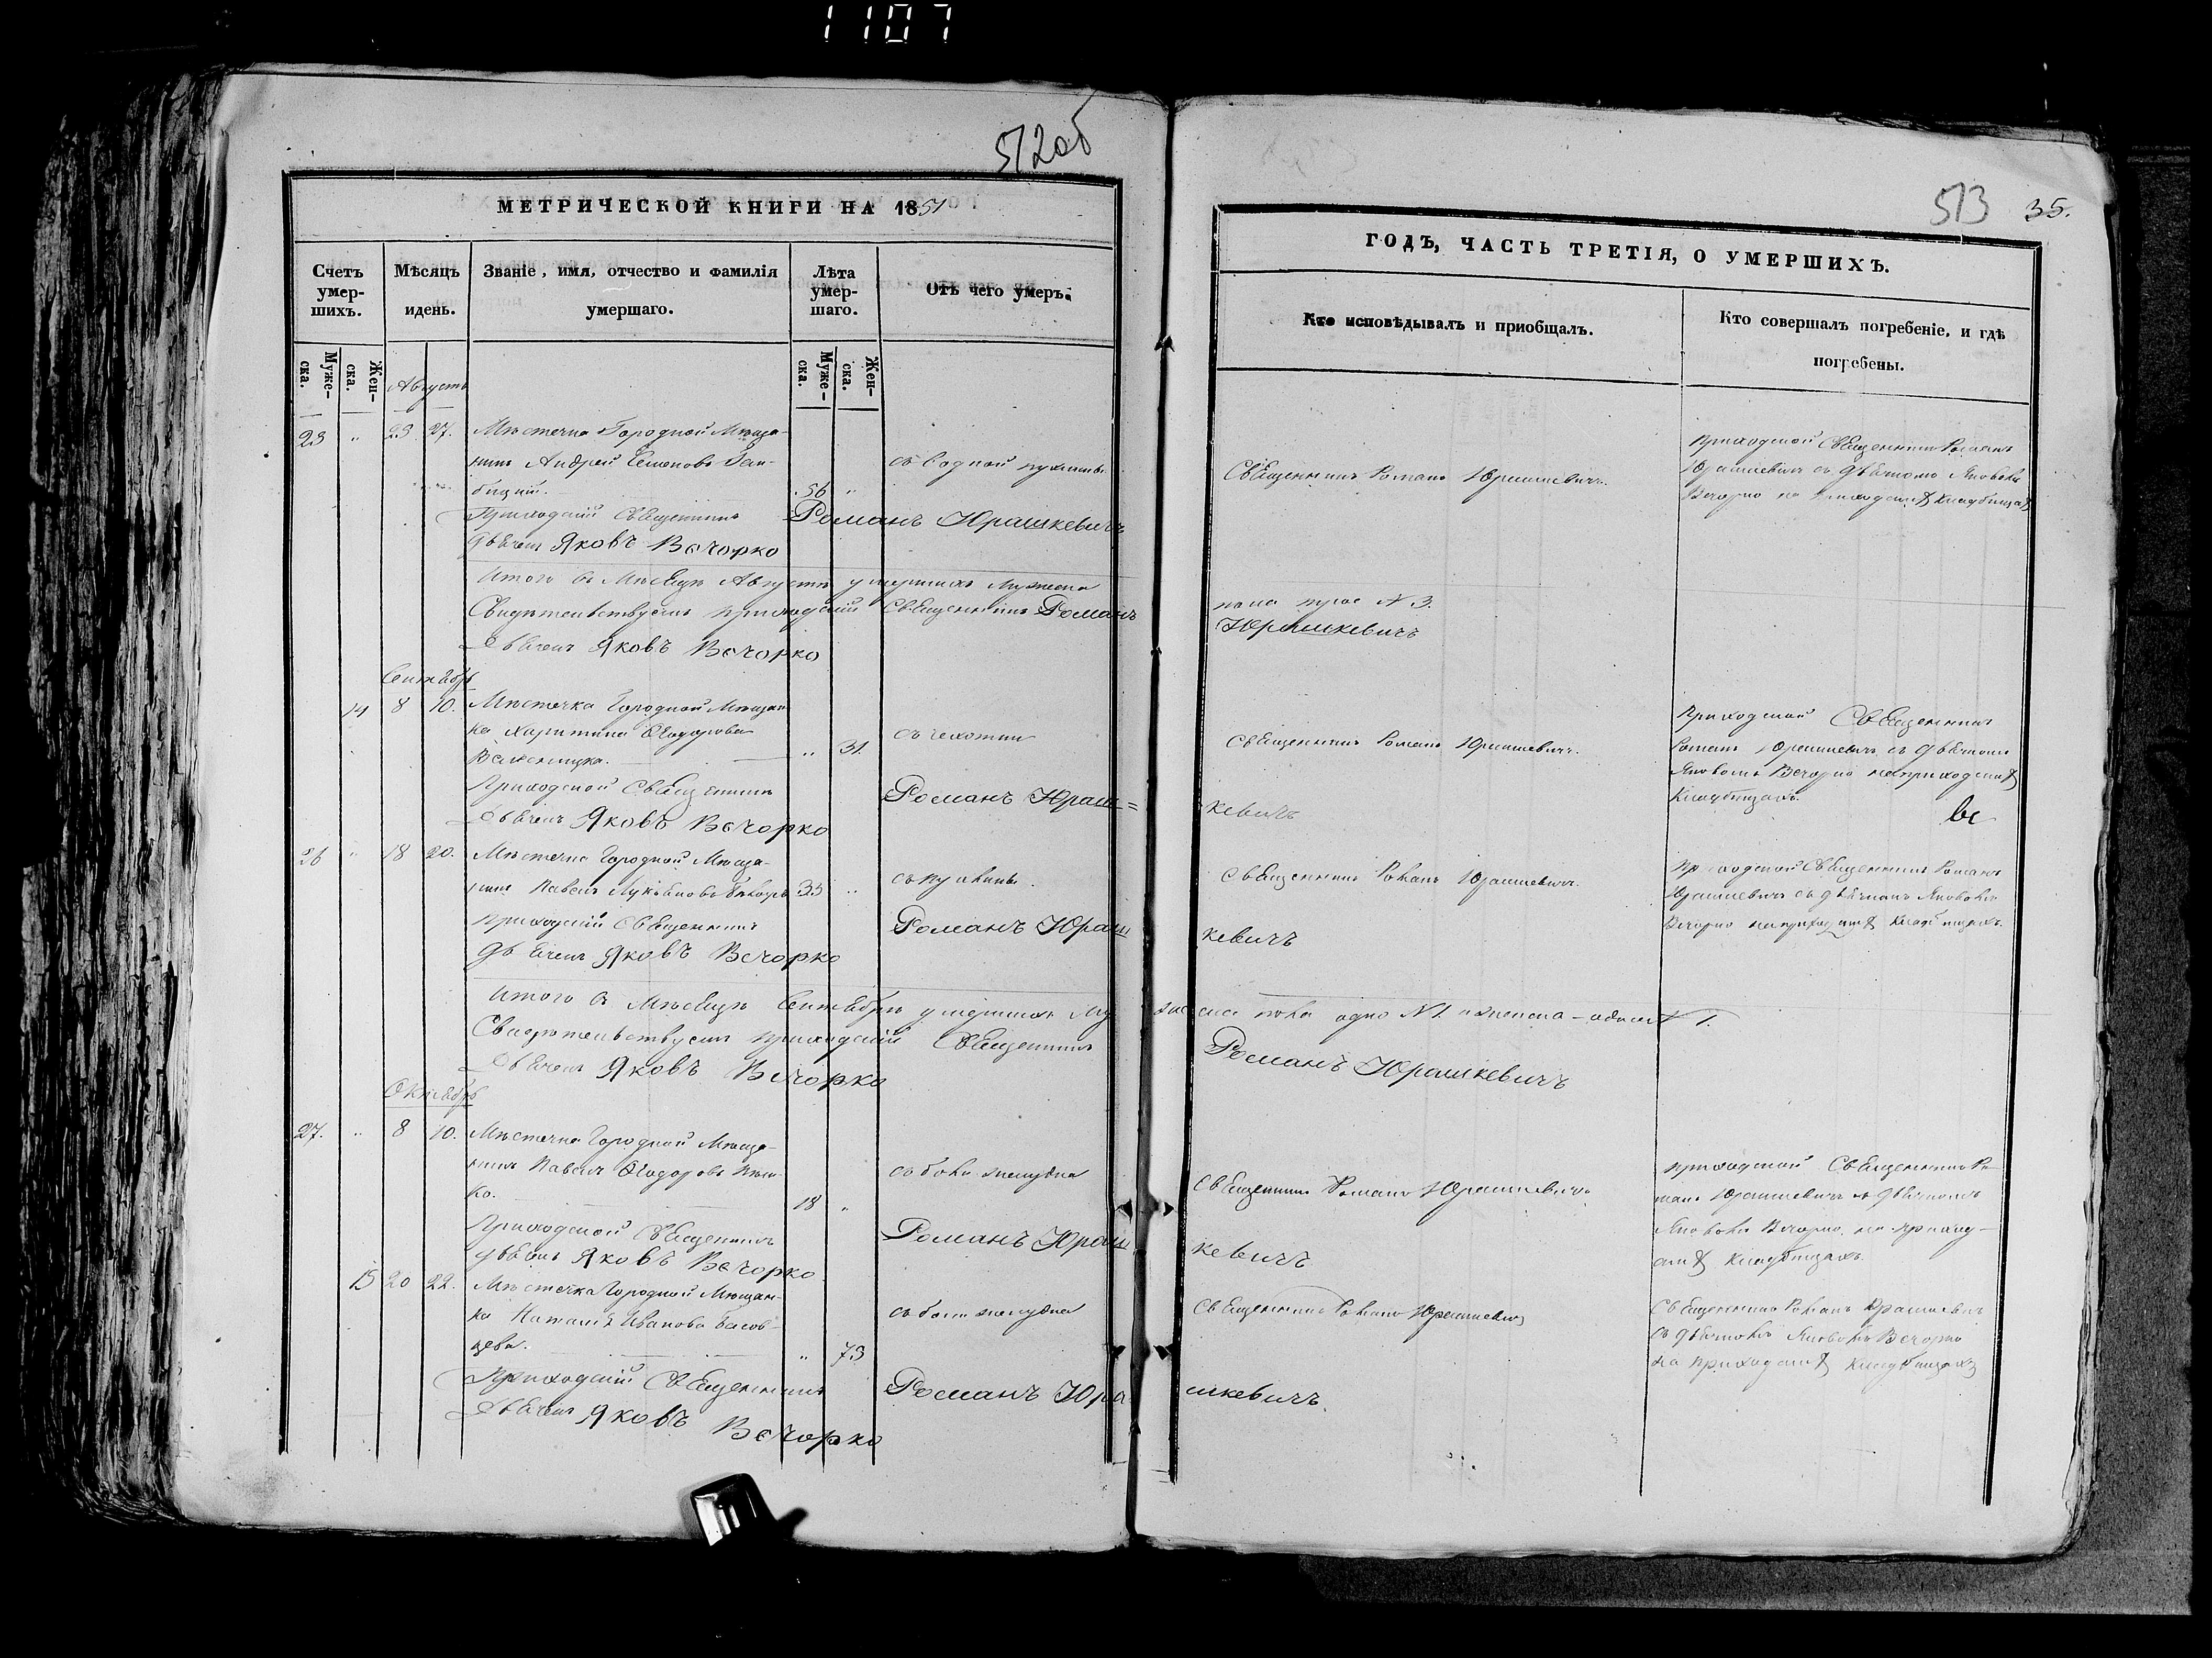 1107
512об
МЕТРИЧЕСКОЙ КНИГИ НА 1851
Счетъ умер-шихъ.
Мѣсяцъ идень.
Званіе, имя, отчество и фамилія умершаго.
Лѣта умер-шаго.
Отъ чего умеръ.
Муже-ска.
Жен-ска.
Муже-ска.
Жен-ска.
Августъ
23 " 23 27. Мѣстечка Городной Мѣща-
нинъ Андрей Семеновъ
бицкій. 56 "
Приходскій Священникъ Романъ Юрашкевичъ
Дьячекъ Яковъ Вечорко
Итого въ Мѣсяцѣ Августѣ умершихъ мужеска
Свидѣтельствуемъ приходскій Священникъ Романъ
Дьячекъ Яковъ Вечорко
Сентябрь
14 8 10. Мѣстечка Городной Мѣщан-
ка Харитина Ѳеодорова
31. съ чахотки
Приходской Священникъ Романъ Юраш=
Дьячекъ Яковъ Вечорко
" 18 20. Мѣстечка Городной Мѣща-
нинъ Павелъ Лукьяновъ 35 "
Приходскій Священникъ Романъ Юраш
Дьячекъ Яковъ Вечорко
Итого въ Мѣсяцѣ Сентябрѣ умершихъ Му
Свидѣтельствуемъ приходскій Священникъ
Дьячекъ Яковъ Вечорко
Октябрь
27. " 8 10. Мѣстечка Городной Мѣща-
нинъ Павелъ Ѳеодоровъ
ко. 18 "
съ боли желудка
Приходской Священникъ Романъ Юраш
Дьячекъ Яковъ Вечорко
15 20 22. Мѣстечка Городной Мѣщан-
ка Наталія Иванова
цева. " 73
съ боли желудка
Приходскій Священникъ Романъ Юра
Дьячекъ Яковъ Вечорко
513 35.
ГОДЪ, ЧАСТЬ ТРЕТІЯ, О УМЕРШИХЪ.
Кто исповѣдывалъ и приобщалъ.
Кто совершалъ погребеніе, и гдѣ погребены.
Священникъ Романъ Юрашкевичъ.
Приходской Священникъ Романъ
Юрашкевичъ съ дьячкомъ Яковомъ
Вечорко на приходскихъ кладбищахъ
пола трое N 3.
Юрашкевичъ
Священникъ Романъ Юрашкевичъ.
Приходской Священникъ
Романъ Юрашкевичъ съ дьячкомъ
Яковомъ Вечорко на приходскихъ
Кладбищахъ.
кевичъ
Священникъ Романъ Юрашкевичъ.
Приходской Священникъ Романъ
Юрашкевичъ съ дьячкомъ Яковомъ
Вечорко на приходскихъ кладбищахъ.
кевичъ
жеска пола одно N 1. и женска – одна N 1.
Романъ Юрашкевичъ
Священникъ Романъ Юрашкевичъ
Приходской Священникъ Ро-
манъ Юрашкевичъ съ дьячкомъ
Яковомъ Вечорко, на приход-
скихъ кладбищахъ.
кевичъ
Священникъ Романъ Юрашкевичъ
Священникъ Романъ Юрашкевичъ
съ дьячкомъ Яковомъ Вечорко
на приходскихъ кладбищахъ
шкевичъ.